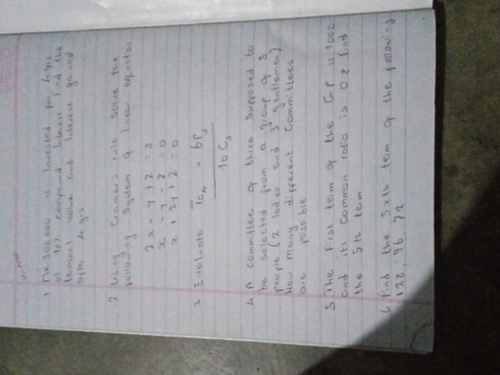 1 is invested for 4 yrs
at 10% compound interest find the
terminal value and interest gained
after 4 yrs
2 Using Cramers rule solve the
following system of linear equation
2x - y + z = 3
x - y - z = 0
x + 2y + z = 0
3 Evaluate 7C4 × 6P3
10C5
4 A committee of three supposed to
be selected from a group of 5
people (2 ladies and 3 gentlemen)
How many different committees
are possible
5 The first term of the GP is 1000
and its common ratio is 0.8 find
the 5th term
6 find the sixth term of the following
128, 96, 72